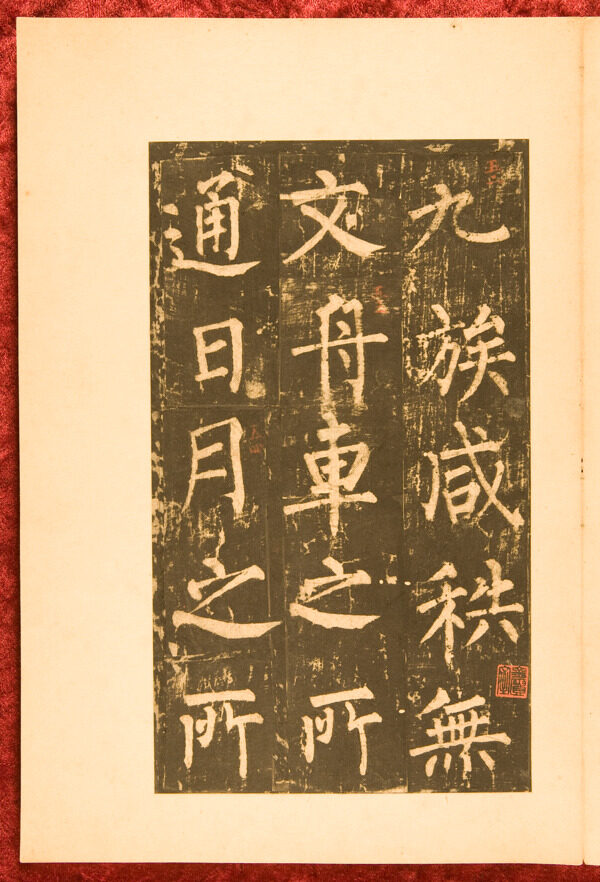 九族咸秩無
文舟車之所
通日月之所